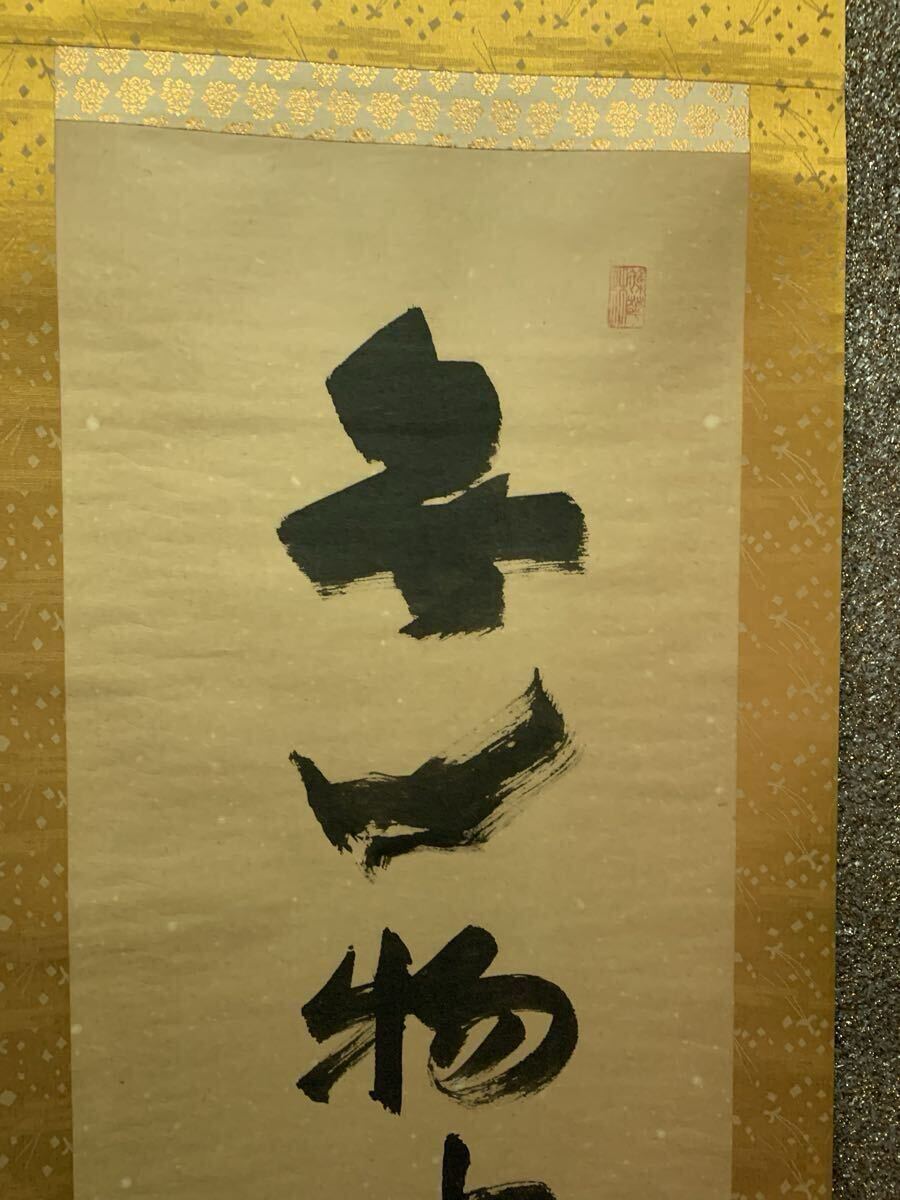 無一物